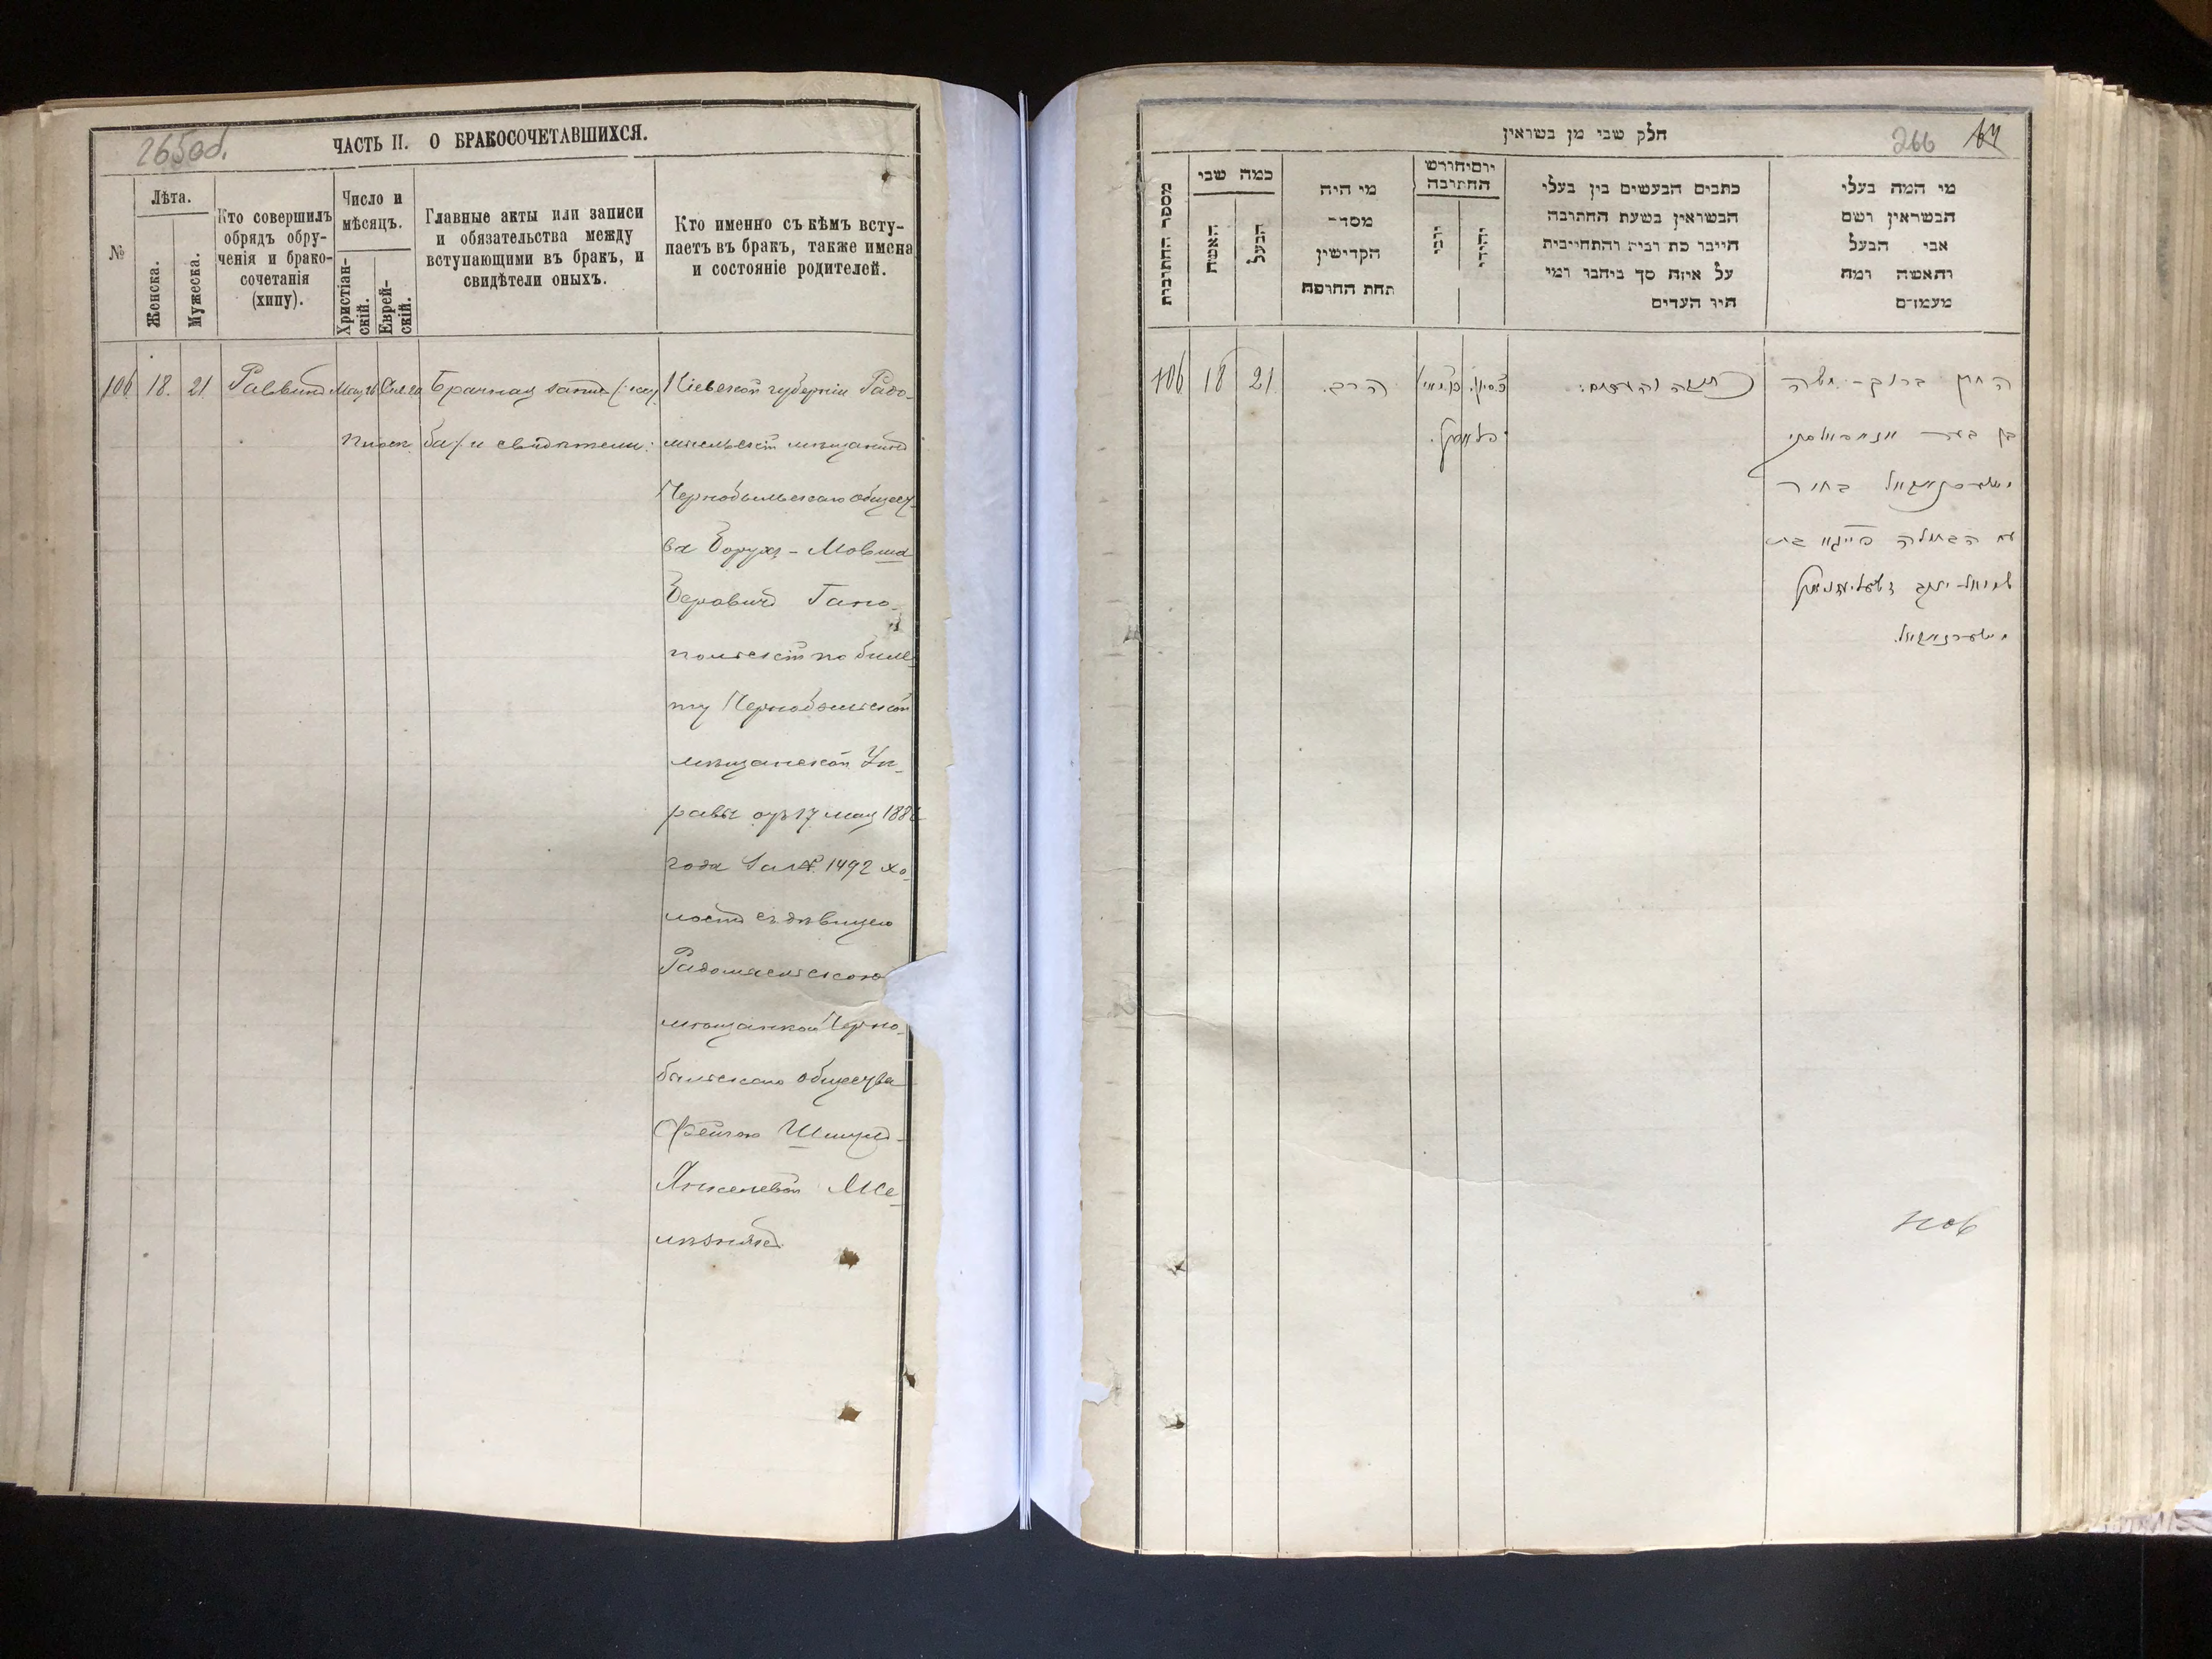 265об.
ЧАСТЬ II. О БРАКОСОЧЕТАВШИХСЯ.
№
Лѣта.
Женска.
Мужеска.
Кто совершилъ
обрядъ обру-
ченія и брако-
сочетанія
(хипу).
Число и
мѣсяцъ.
Христіан-
скій.
Еврей-
скій.
Главные акты или записи
и обязательства между
вступающими въ бракъ, и
свидѣтели оныхъ.
Кто именно съ кѣмъ всту-
паетъ въ бракъ, также имена
и состояніе родителей.
106
18.
21
Раввинъ
Брачная
ба/ и свидѣтели:
Кіевской губерніи Радо-
мысльскій мѣщанинъ
Чернобыльскаго общест-
ва Борухъ-Мовша
Беровичъ Гано-
польскій по биле-
ту Чернобыльской
мѣщанской Уп-
равы отъ 17 мая 188
года за № 1492 хо-
лостъ съ дѣвицею
Радомысльскою
мѣщанкой Черно-
быльскаго общества
Фейгою Шмуль-
Янкелевой Ме-
חלק שני מן נשואין
266
מספר החתונות
כמה שני
האשה
הבעל
מי היה
מסדר
הקדישין
תחת החופה
יום וחודש
החתונה
נוצרי
יהודי
כתבים הנעשים בין בעלי
הנשואין בשעת החתונה
חייבו כת רבית והתחייבות
על איזה סך ביהבו ומי
היו העדים
מי המה בעלי
הנשואין ושם
אבי הבעל
והאשה ומה
מעמדם
106
18
21
הרב.
כתובה והעדים:
ברוך-משה
בן בער
בחור
עם הבתולה פייגא בת
שמואל-יעקב